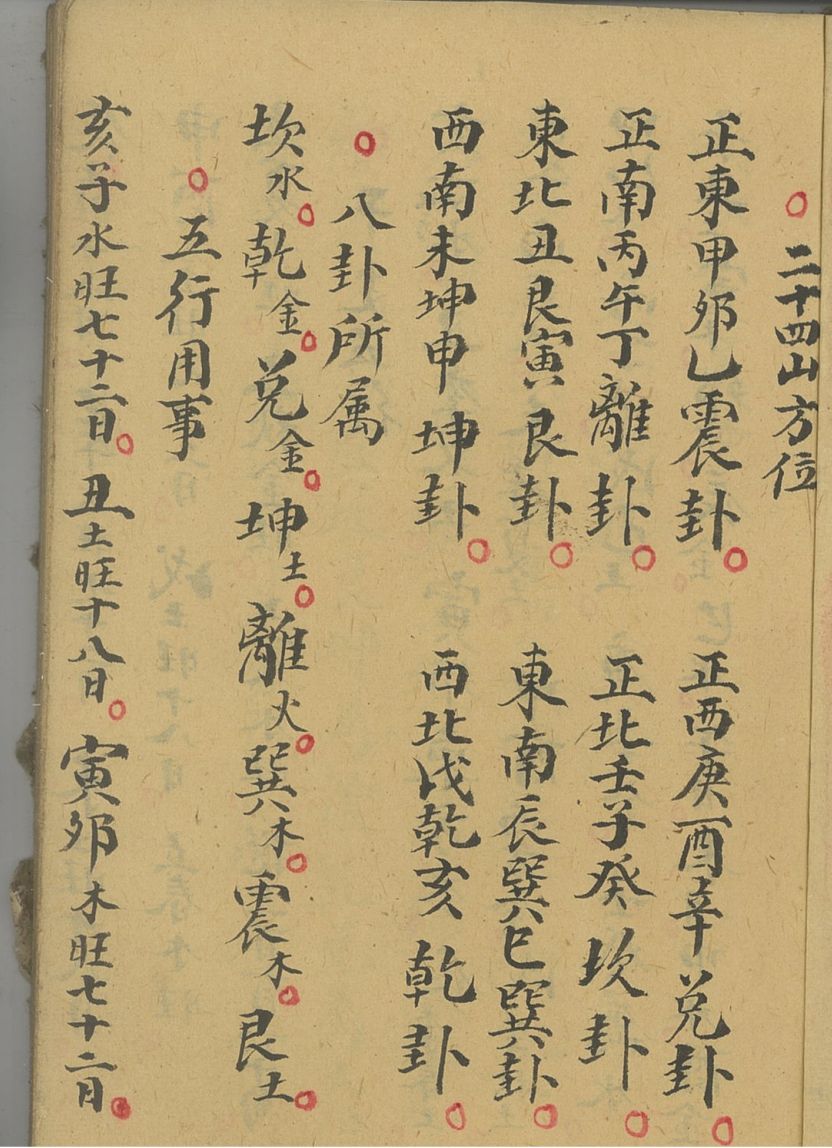 ○ 二十四山方位
正東甲卯乙震卦○ 正西庚酉辛兑卦○
正南丙午丁離卦○ 正北壬子癸坎卦○
東北丑艮寅艮卦○ 東南辰巽巳巽卦○
西南未坤申坤卦○ 西北戌乾亥乾卦○
○ 八卦所属
坎水○乾金○兑金○坤土○離火○巽木○震木○艮土○
○ 五行用事
亥子水旺七十二日○丑土旺十八日○寅卯木旺七十二日○